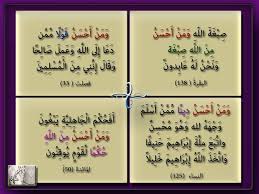 صِبْغَةَ اللَّهِ وَمَنْ أَحْسَنُ
مِنَ اللَّهِ صِبْغَةً
وَنَحْنُ لَهُ عَابِدُونَ
البقرة ( 138 )
وَمَنْ أَحْسَنُ قَوْلًا مِّمَّن
دَعَا إِلَى اللَّهِ وَعَمِلَ صَالِحًا
وَقَالَ إِنَّنِي مِنَ الْمُسْلِمِينَ
فصلت ( 33 )
وَمَنْ أَحْسَنُ دِينًا مِمَّنْ أَسْلَمَ
وَجْهَهُ لِلَّهِ وَهُوَ مُحْسِنٌ
وَاتَّبَعَ مِلَّةَ إِبْرَاهِيمَ حَنِيفًا
وَاتَّخَذَ اللَّهُ إِبْرَاهِيمَ خَلِيلًا
النساء (125)
أَفَحُكْمَ الْجَاهِلِيَّةِ يَبْغُونَ
وَمَنْ أَحْسَنُ مِنَ اللَّهِ
حُكْمًا لِّقَوْمٍ يُوقِنُونَ
المائدة (50)